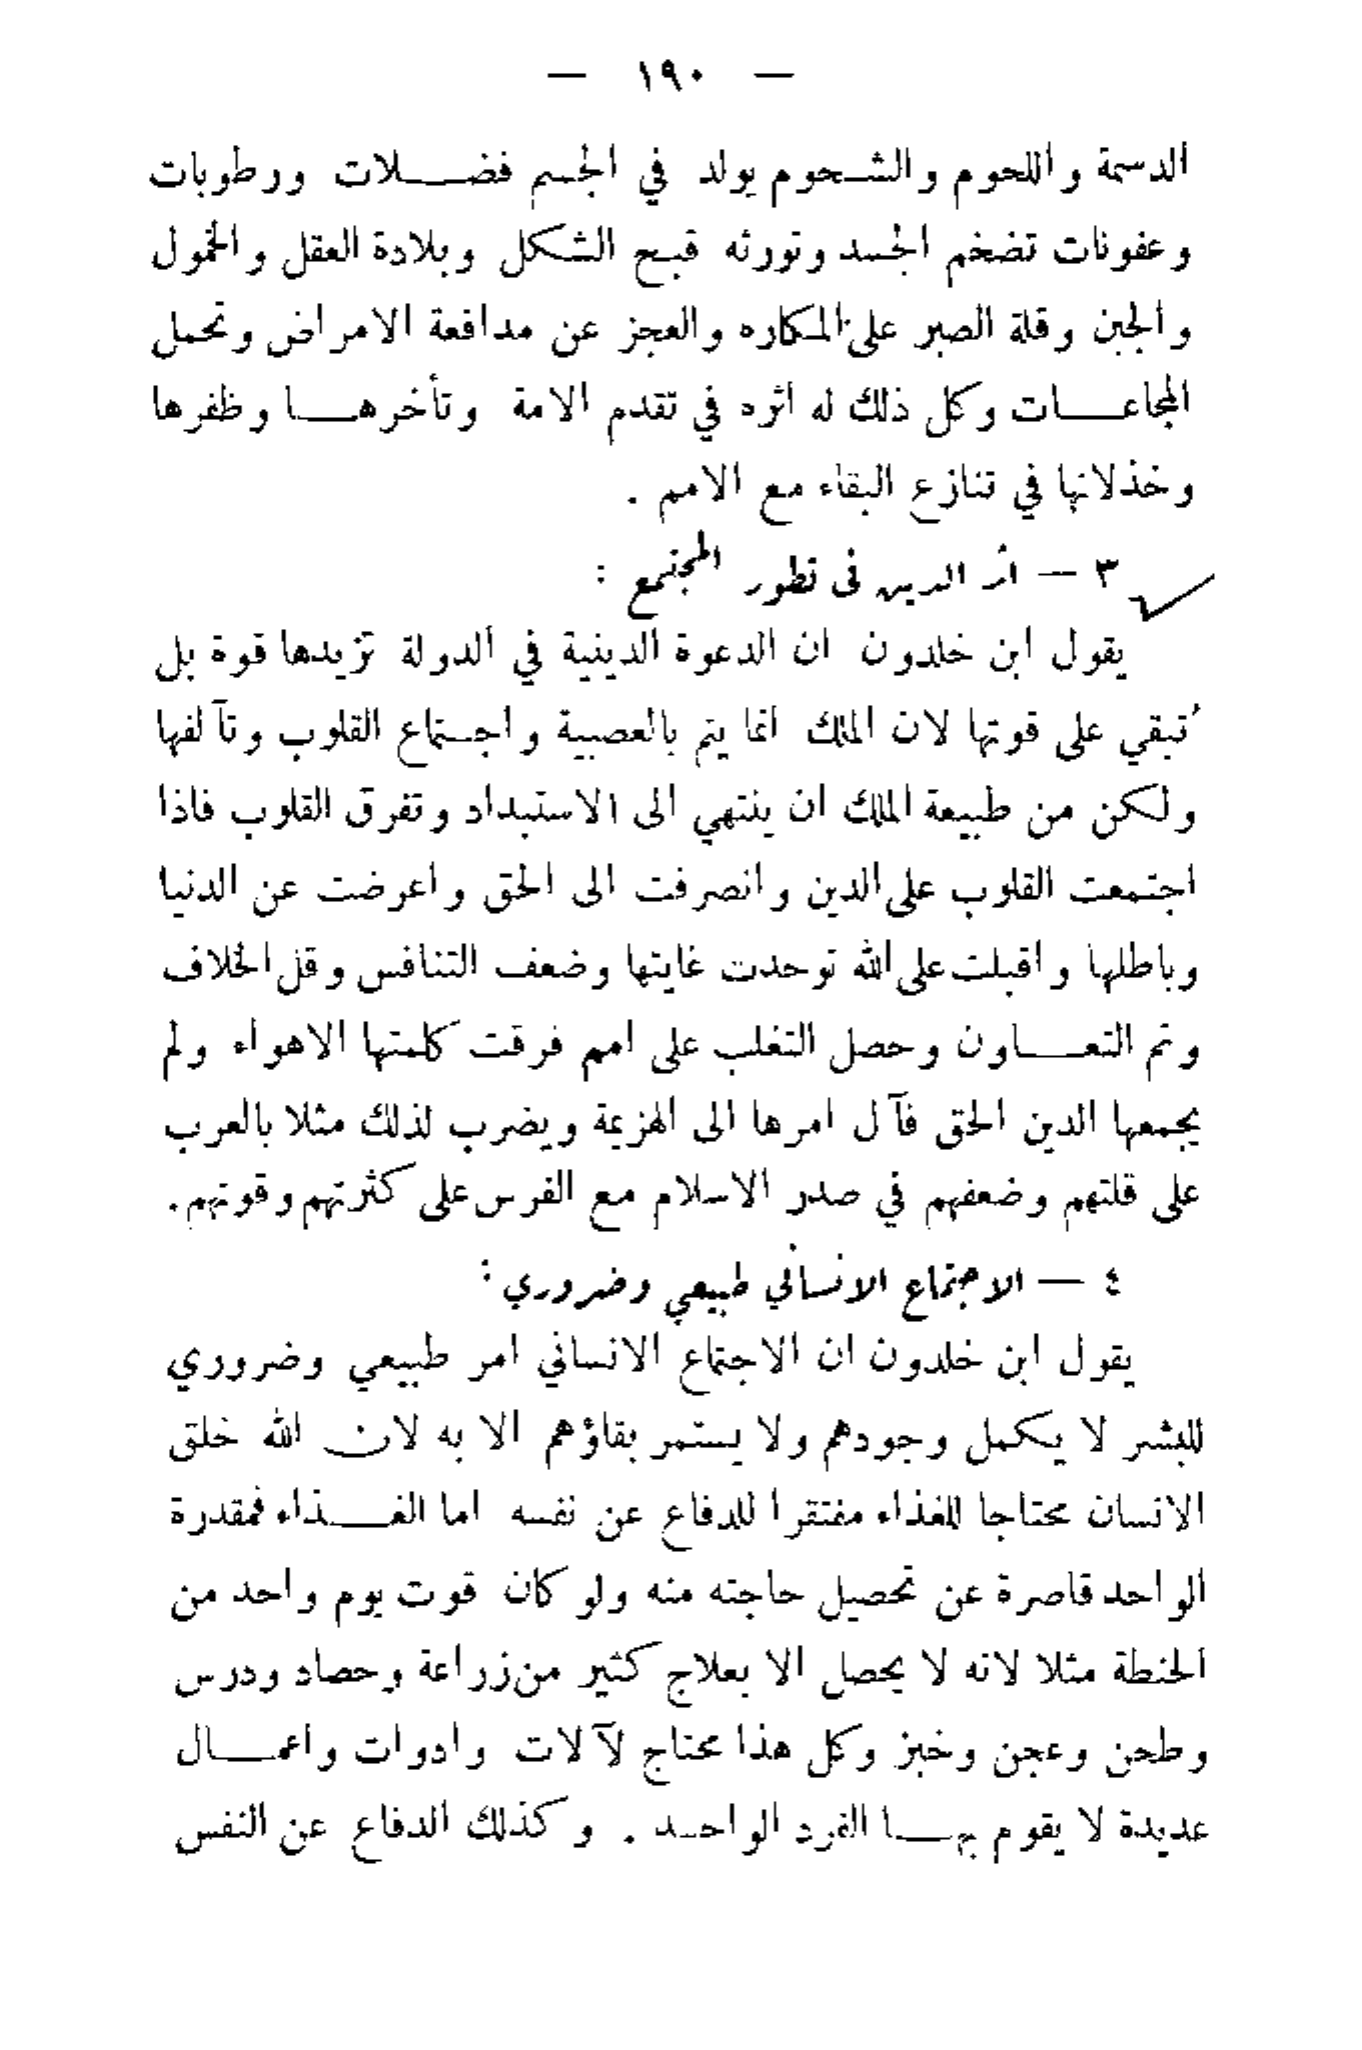 — ١٩٠ —
الدسمة واللحوم والشحوم يولد في الجسم فضلات ورطوبات
وعفونات تضخم الجسد وتورثه قبح الشكل وبلادة العقل والخمول
والجبن وقلة الصبر على المكاره والعجز عن مدافعة الامراض وتحمل
المجاعات وكل ذلك له اثره في تقدم الامة وتأخرها وظفرها
وخذلانها في تنازع البقاء مع الامم .
٣ — اثر الدين في تطور المجتمع :
يقول ابن خلدون ان الدعوة الدينية في الدولة تزيدها قوة بل
ُتبقي على قوتها لان الملك انما يتم بالعصبية واجتماع القلوب وتآلفها
ولكن من طبيعة الملك ان ينتهي الى الاستبداد وتفرق القلوب فاذا
اجتمعت القلوب على الدين وانصرفت الى الحق واعرضت عن الدنيا
وباطلها واقبلت على الله توحدت غايتها وضعف التنافس وقل الخلاف
وتم التعاون وحصل التغلب على امم فرقت كلمتها الاهواء ولم
يجمعها الدين الحق فآل امرها الى الهزيمة ويضرب لذلك مثلا بالعرب
على قلتهم وضعفهم في صدر الاسلام مع الفرس على كثرتهم وقوتهم.
٤ — الاجتماع الانساني طبيعي وضروري :
يقول ابن خلدون ان الاجتماع الانساني امر طبيعي وضروري
للبشر لا يكمل وجودهم ولا يستمر بقاؤهم الا به لان الله خلق
الانسان محتاجا للغذاء مفتقرا للدفاع عن نفسه اما الغذاء فمقدرة
الواحد قاصرة عن تحصيل حاجته منه ولو كان قوت يوم واحد من
الحنطة مثلا لانه لا يحصل الا بعلاج كثير من زراعة وحصاد ودرس
وطحن وعجن وخبز وكل هذا محتاج لآلات وادوات واعمال
عديدة لا يقوم بها الفرد الواحد . وكذلك الدفاع عن النفس